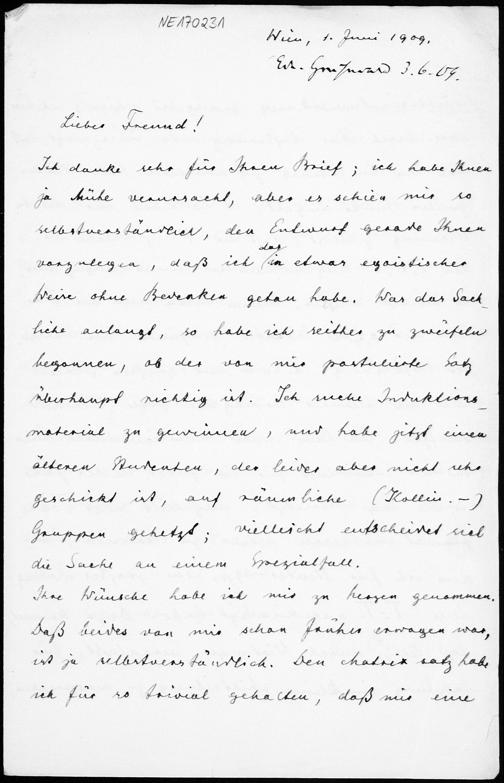 NE170231
Wien, 1. Juni 1909.
3.6.09.
Lieber Freund!
Ich danke sehr für Ihren Brief; ich habe Ihnen
ja Mühe verursacht, aber es schien mir so
selbstverständlich, den Entwurf gerade Ihnen
vorzulegen, daß ich das in etwas egoistischer
Weise ohne Bedenken getan habe. Was das Sach-
liche anlangt, so habe ich seither zu zweifeln
begonnen, ob der von mir postulierte Satz
überhaupt richtig ist. Ich suche Induktions-
material zu gewinnen, und habe jetzt einen
älteren Studenten, der leider aber nicht sehr
geschickt ist, auf räumliche (Kollin.-)
Gruppen gehetzt; vielleicht entscheidet sich
die Sache an einem Spezialfall.
Ihre Wünsche habe ich mir zu herzen genommen.
Daß beides von mir schon früher erwogen war,
ist ja selbstverständlich. Den satz habe
ich für so trivial gehalten, daß mir eine